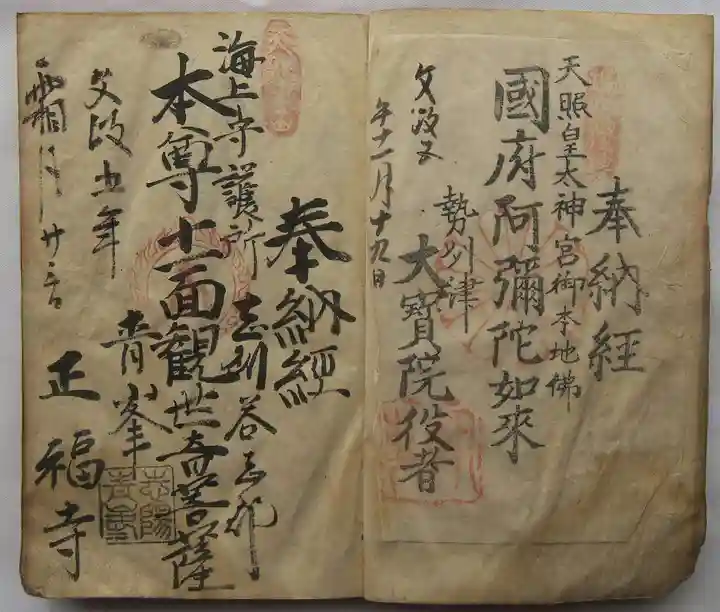 奉納経
天照皇太神宮御本地佛
國府阿彌陀如來
勢州津
大寶院役者
文政五
午十一月十九日
奉納經
志州答志郡
海上守護所
本尊十一面観世音菩薩
青峯
正福寺
文政五年
霜月廿